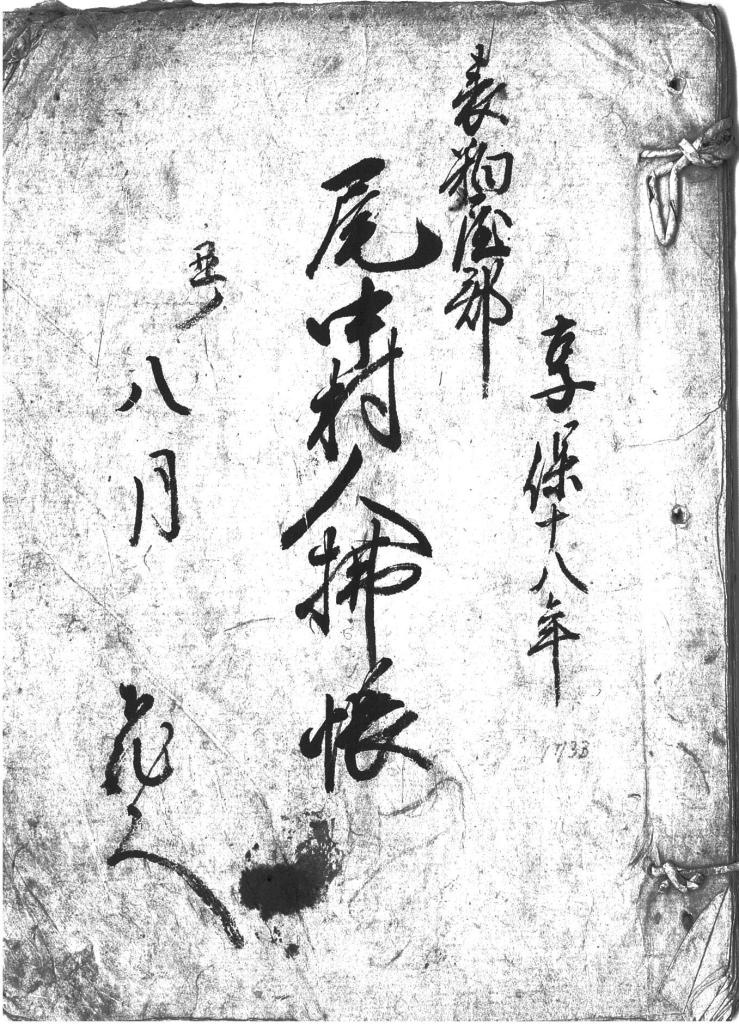 享保十八年
1733
表粕屋郡
尾中村人拂帳
丑ノ
八月